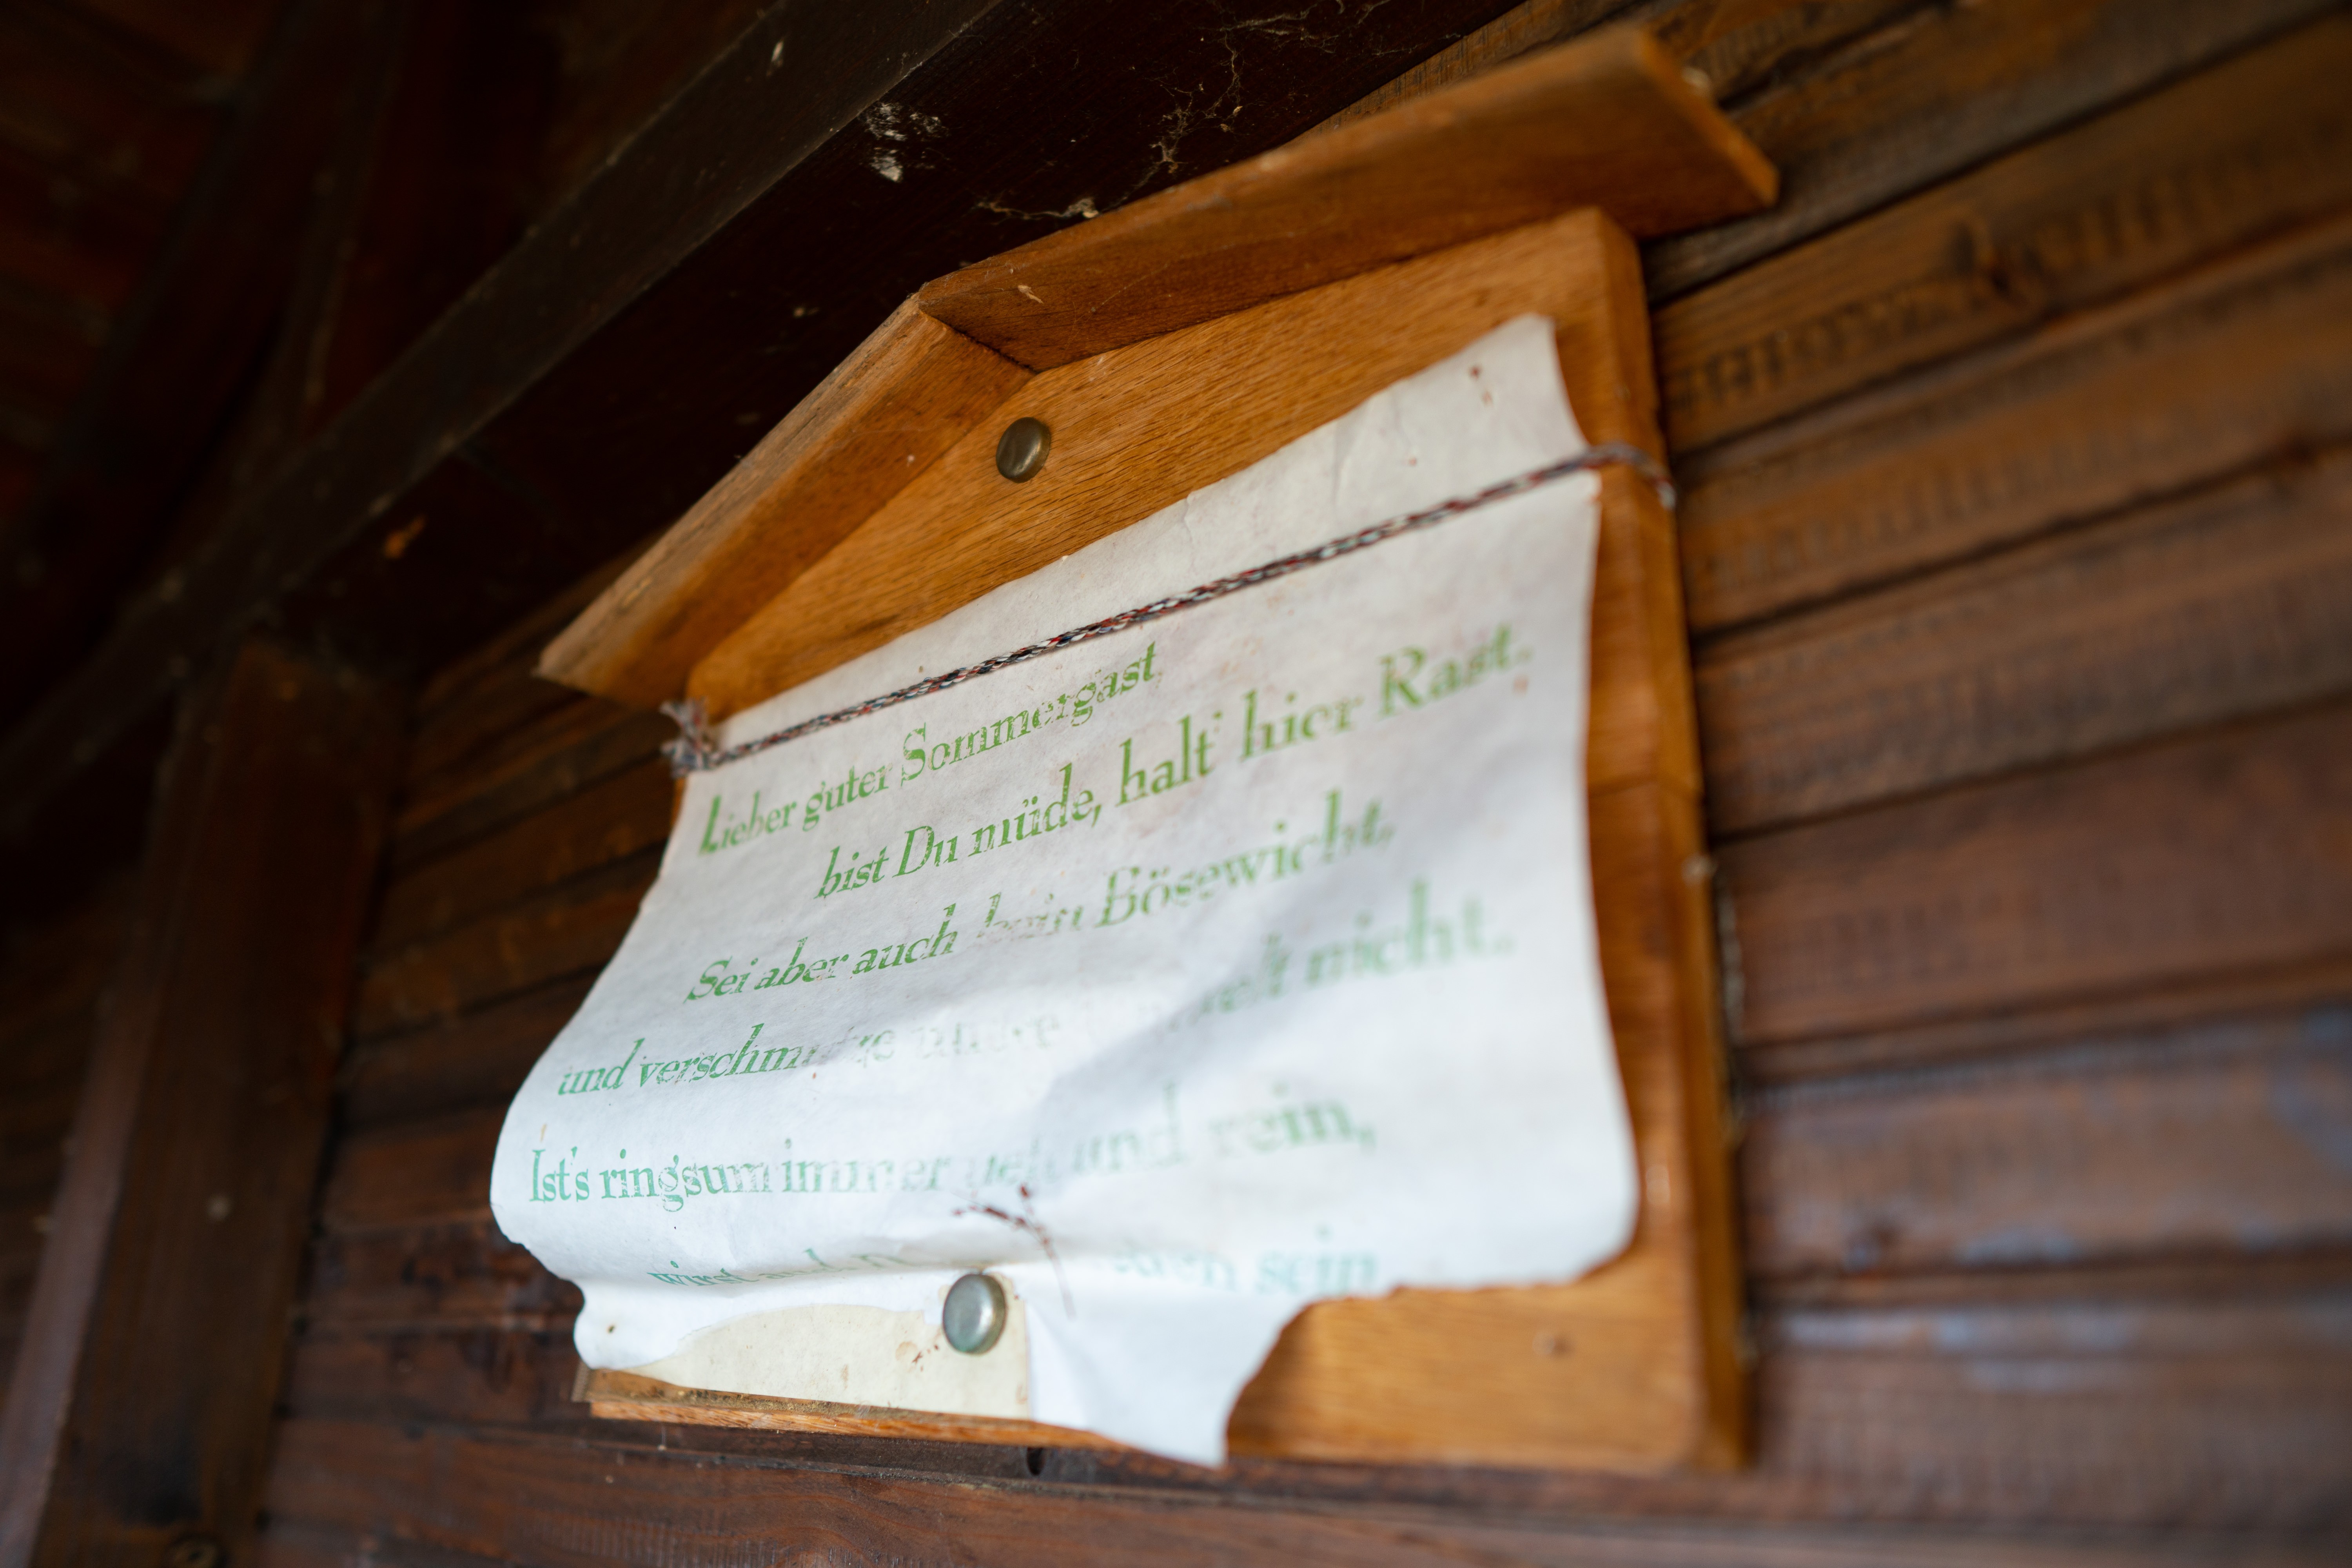 Lieber guter Sommergast,
bist Du müde, halt' hier Rast.
Sei aber auch kein Bösewicht,
und verschmutze nicht.
Ist's ringsum immer nett und rein,
wirst auch sein